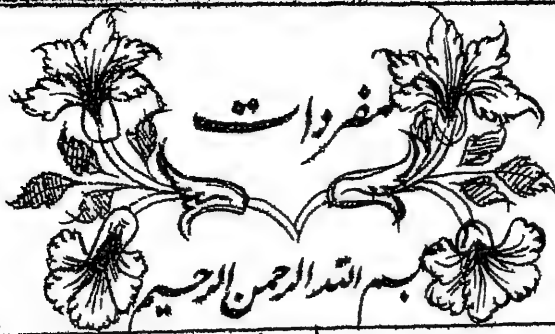 مفردات
بسم اللہ الرحمن الرحیم